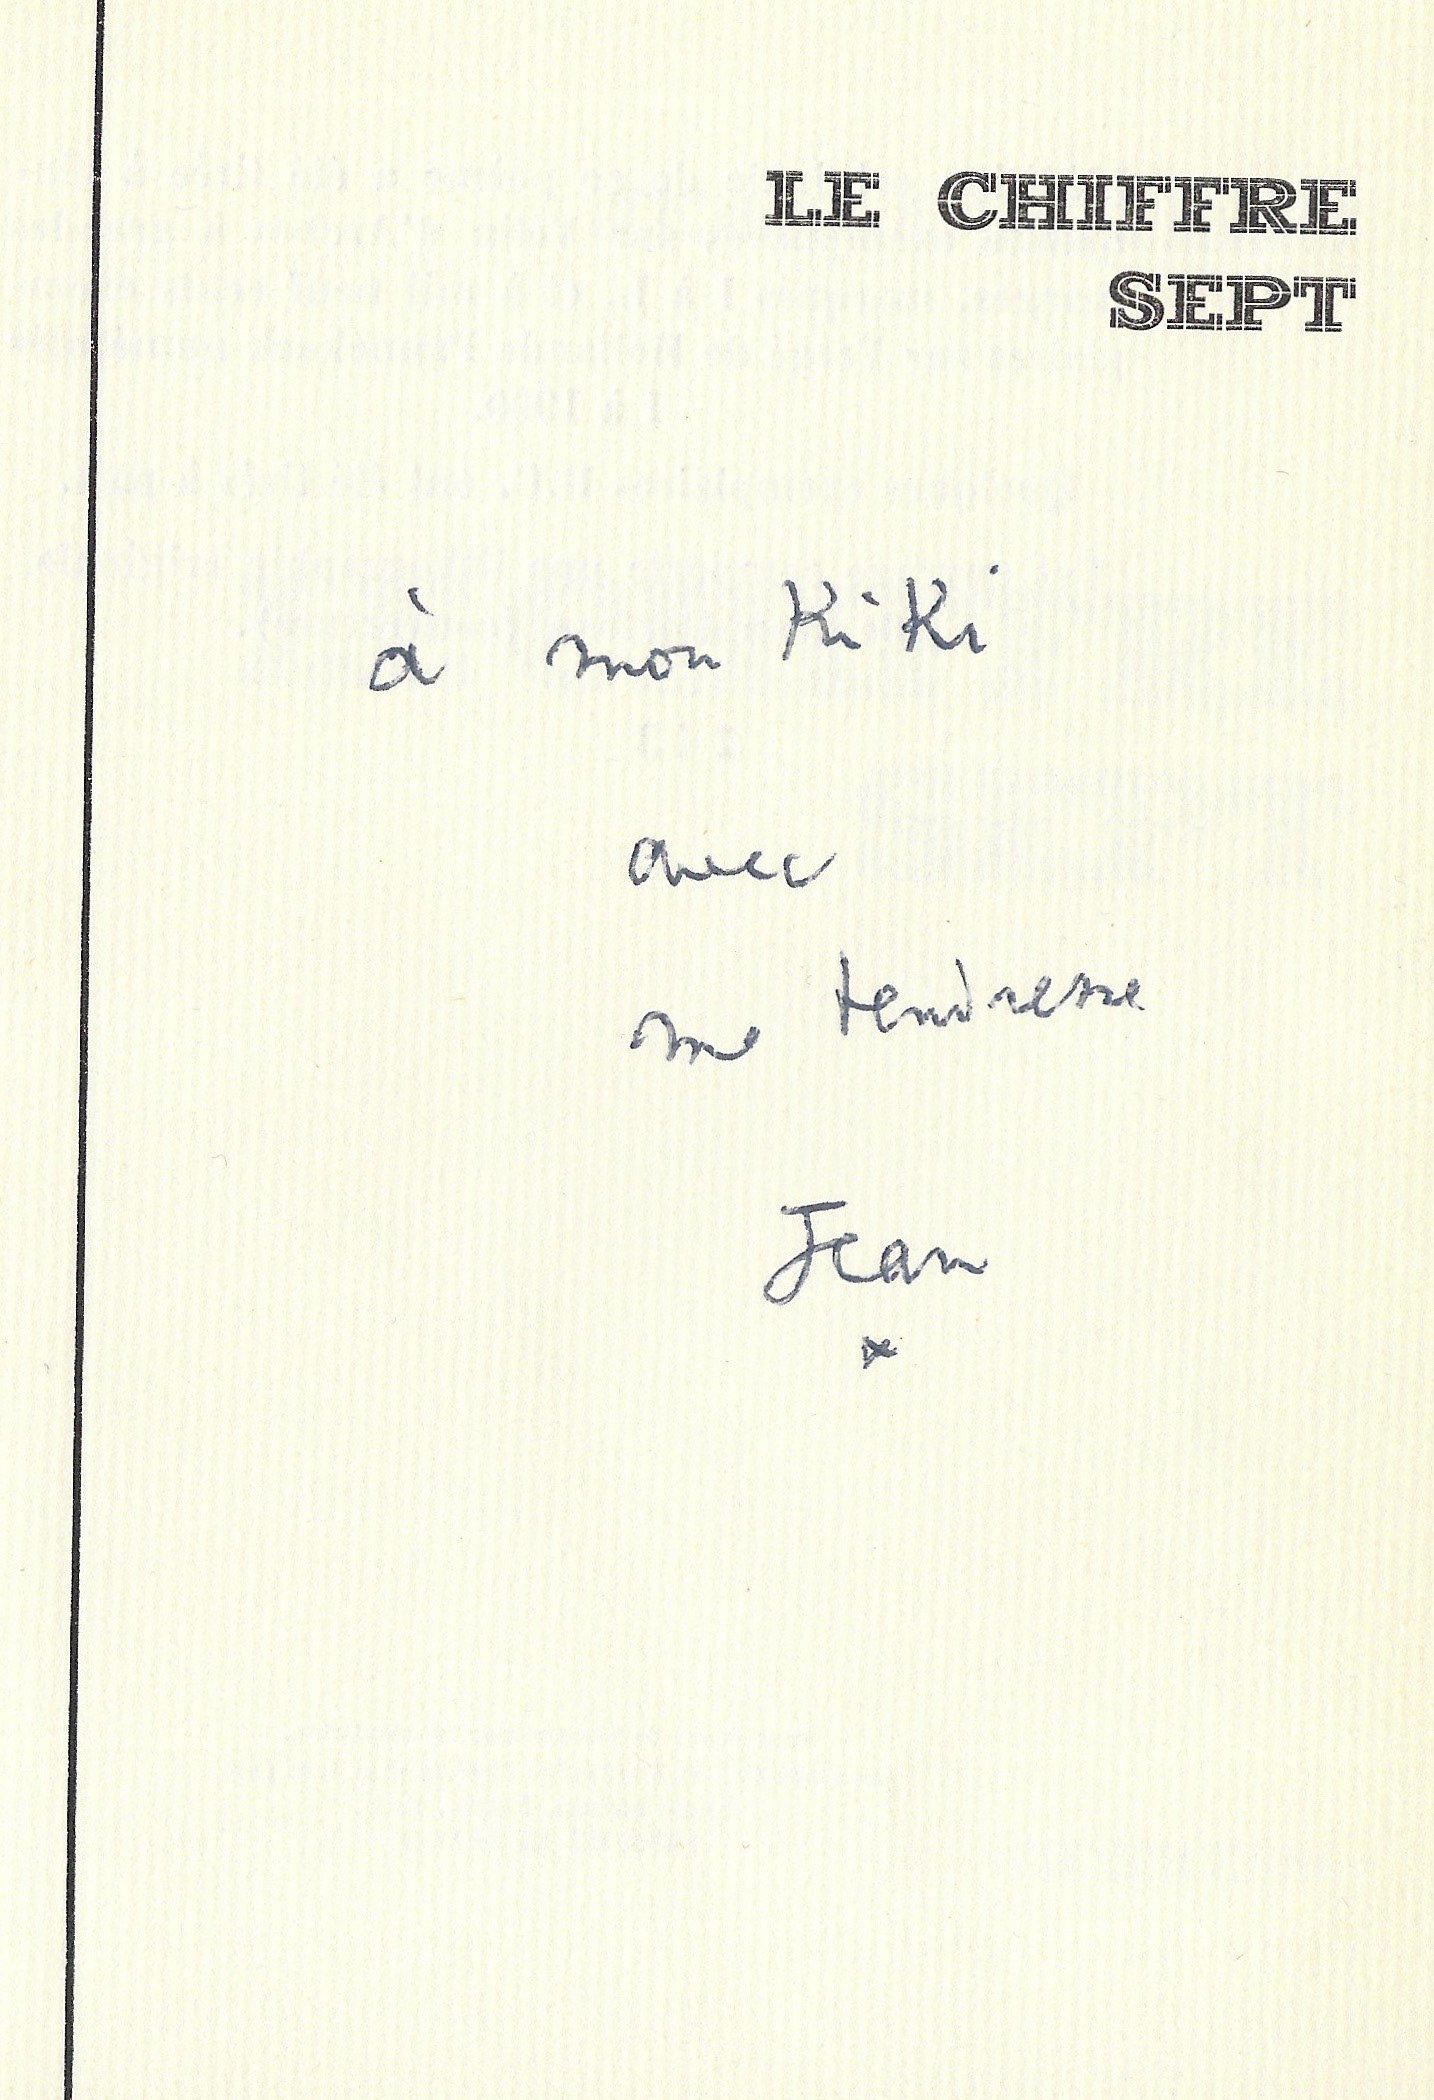 LE CHIFFRE
SEPT
à mon KiKi
avec
ma tendresse
Jean
*